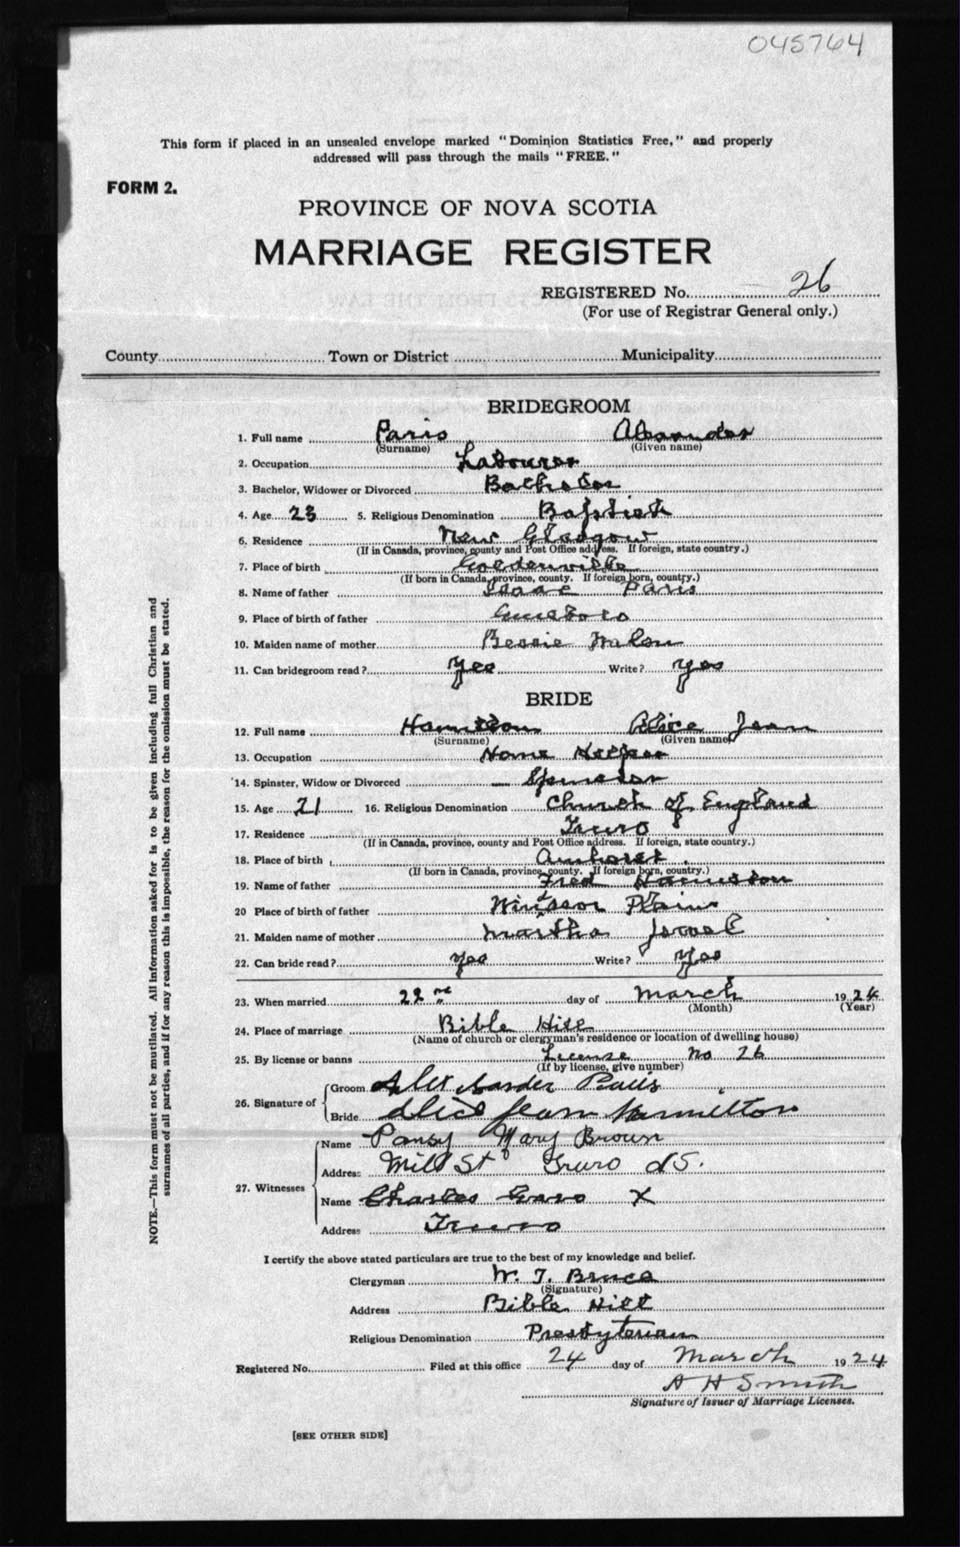 045764
This form if placed in an unsealed envelope marked "Dominion Statistics Free," and properly
addressed will pass through the mails "FREE."
FORM 2.
PROVINCE OF NOVA SCOTIA
MARRIAGE REGISTER
REGISTERED No. 26
(For use of Registrar General only.)
County Town or District Municipality
BRIDEGROOM
1. Full name Paris Alexander
(Surname) (Given name)
2. Occupation Labourer
3. Bachelor, Widower or Divorced Bachelor
4. Age 23 5. Religious Denomination Baptist
6. Residence New Glasgow
(If in Canada, province, county and Post Office address. If foreign, state country.)
7. Place of birth Goldenville
(If born in Canada, province, county. If foreign born, country.)
8. Name of father Isaac Paris
9. Place of birth of father
10. Maiden name of mother Bessie
11. Can bridegroom read? Yes Write? Yes
BRIDE
12. Full name Hamilton Alice Jean
(Surname) (Given name)
13. Occupation Home Helper
14. Spinster, Widow or Divorced Spinster
15. Age 21 16. Religious Denomination Church of England
17. Residence Truro
(If in Canada, province, county and Post Office address. If foreign, state country.)
18. Place of birth Amherst
(If born in Canada, province, county. If foreign born, country.)
19. Name of father Fred Hamilton
20 Place of birth of father Windsor Plains
21. Maiden name of mother Martha Jerael
22. Can bride read? Yes Write? Yes
23. When married 22nd day of March 1924
(Month) (Year)
24. Place of marriage Bible Hill
(Name of church or clergyman's residence or location of dwelling house)
25. By license or banns License No 26
(If by license, give number)
26. Signature of Groom Alexander Paris
Bride Alice Jean Hamilton
27. Witnesses Name Pansy Mary Brown
Address Mill St Truro NS.
Name Charles X
Address Truro
I certify the above stated particulars are true to the best of my knowledge and belief.
Clergyman W. T. Bruce
(Signature)
Address Bible Hill
Religious Denomination Presbyterian
Registered No. Filed at this office 24 day of March 1924
A H Smith
Signature of Issuer of Marriage Licenses.
[SEE OTHER SIDE]
NOTE.—This form must not be mutilated. All information asked for is to be given including full Christian and
surnames of all parties, and if for any reason this is impossible, the reason for the omission must be stated.